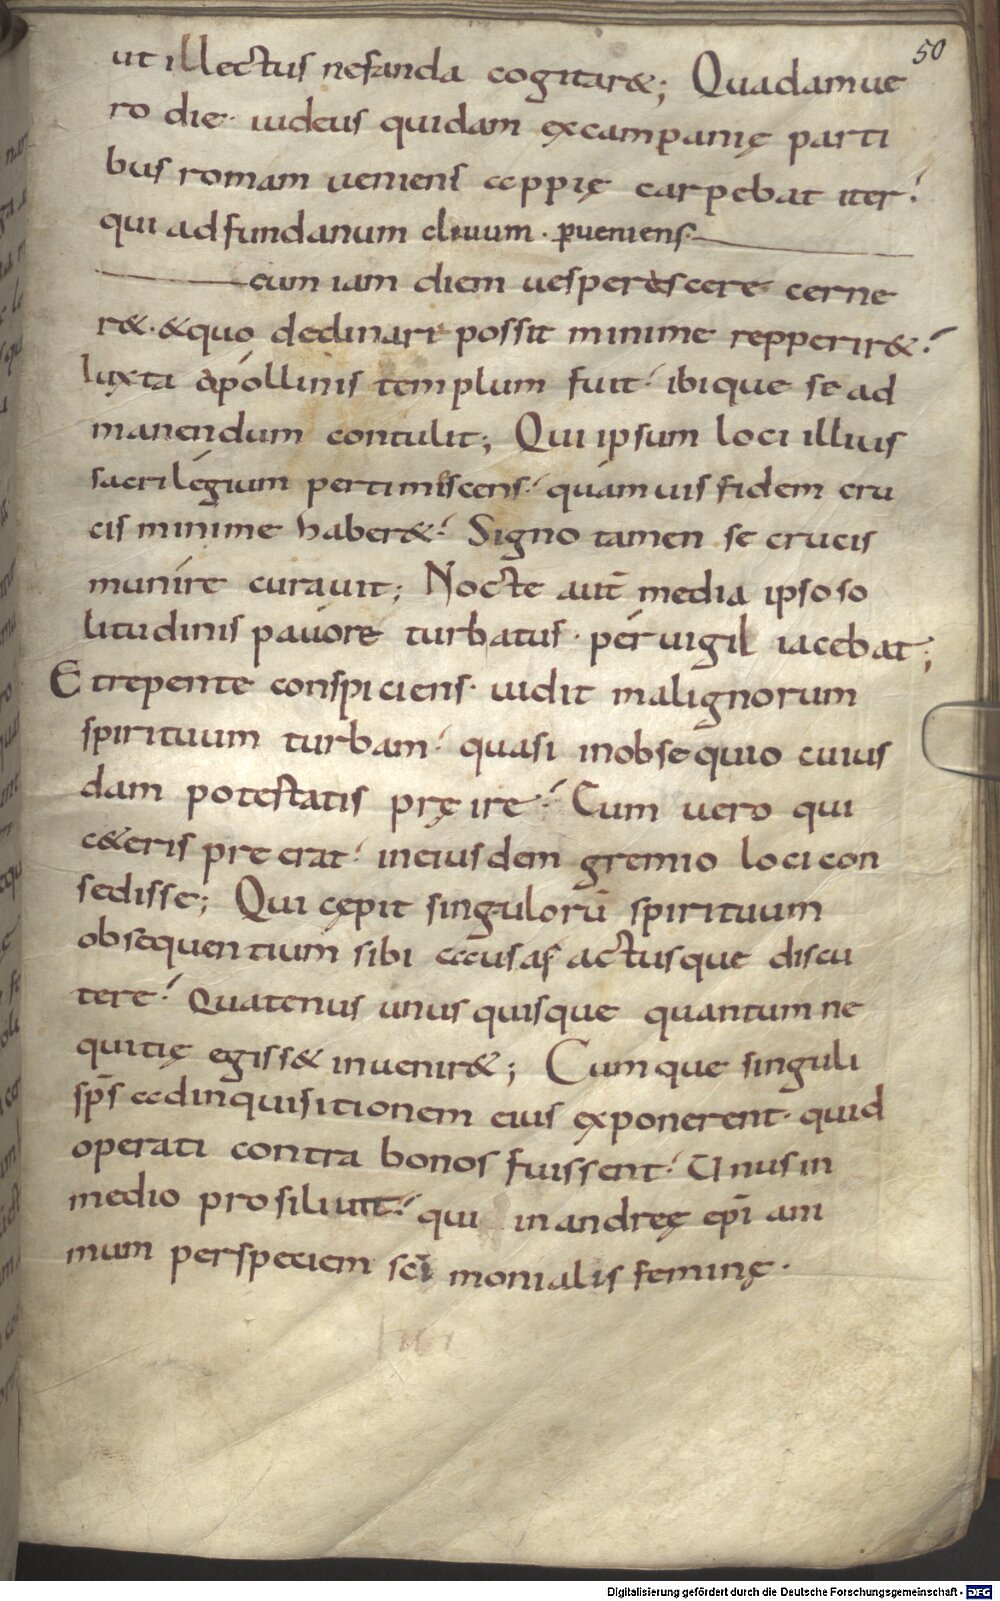 50
ut illectus nefanda cogitar&; Quadam ue
ro die· iudeus quidam ex campanię parti
bus romam ueniens appię carpebat iter·
qui ad fundanum cliuum · ꝑueniens·
cum iam diem uesperescere cerne
r&· & quo declinare possit minime repperir&·
Iuxta apóllinis templum fuit· ibique se ad
manendum contulit; Qui ipsum loci illius
sacrilégium pertimescens· quámuis fidem cru
cis minime haber&· Signo tamen se crucis
muníre curauit; Nocte aut̄ media ipso so
litudinis pauóre turbatus· péruigil iacebat;
Et repente conspiciens· uidit malignorum
spirituum turbam· quasi in obsequio cuius
dam potestatis pręire· Cum uero qui
c&eris preerat· in eiusdem gremio loci con
sedisse; Qui cępit singulorū spirituum
obsequentium sibi causas actusque discu
tere· Quatenus unusquisque quantum ne
quitię egiss& inuenir&; Cumque singuli
sp̄s ad inquisitionem eius exponerent· quid
operati contra bonos fuissent· Unus in
medio prosiliuit· qui in andreę ep̄i ani
mum per speciem sc̄i monialis feminę·
Digitalisierung gefördert durch die Deutsche Forschungsgemeinschaft - DFG